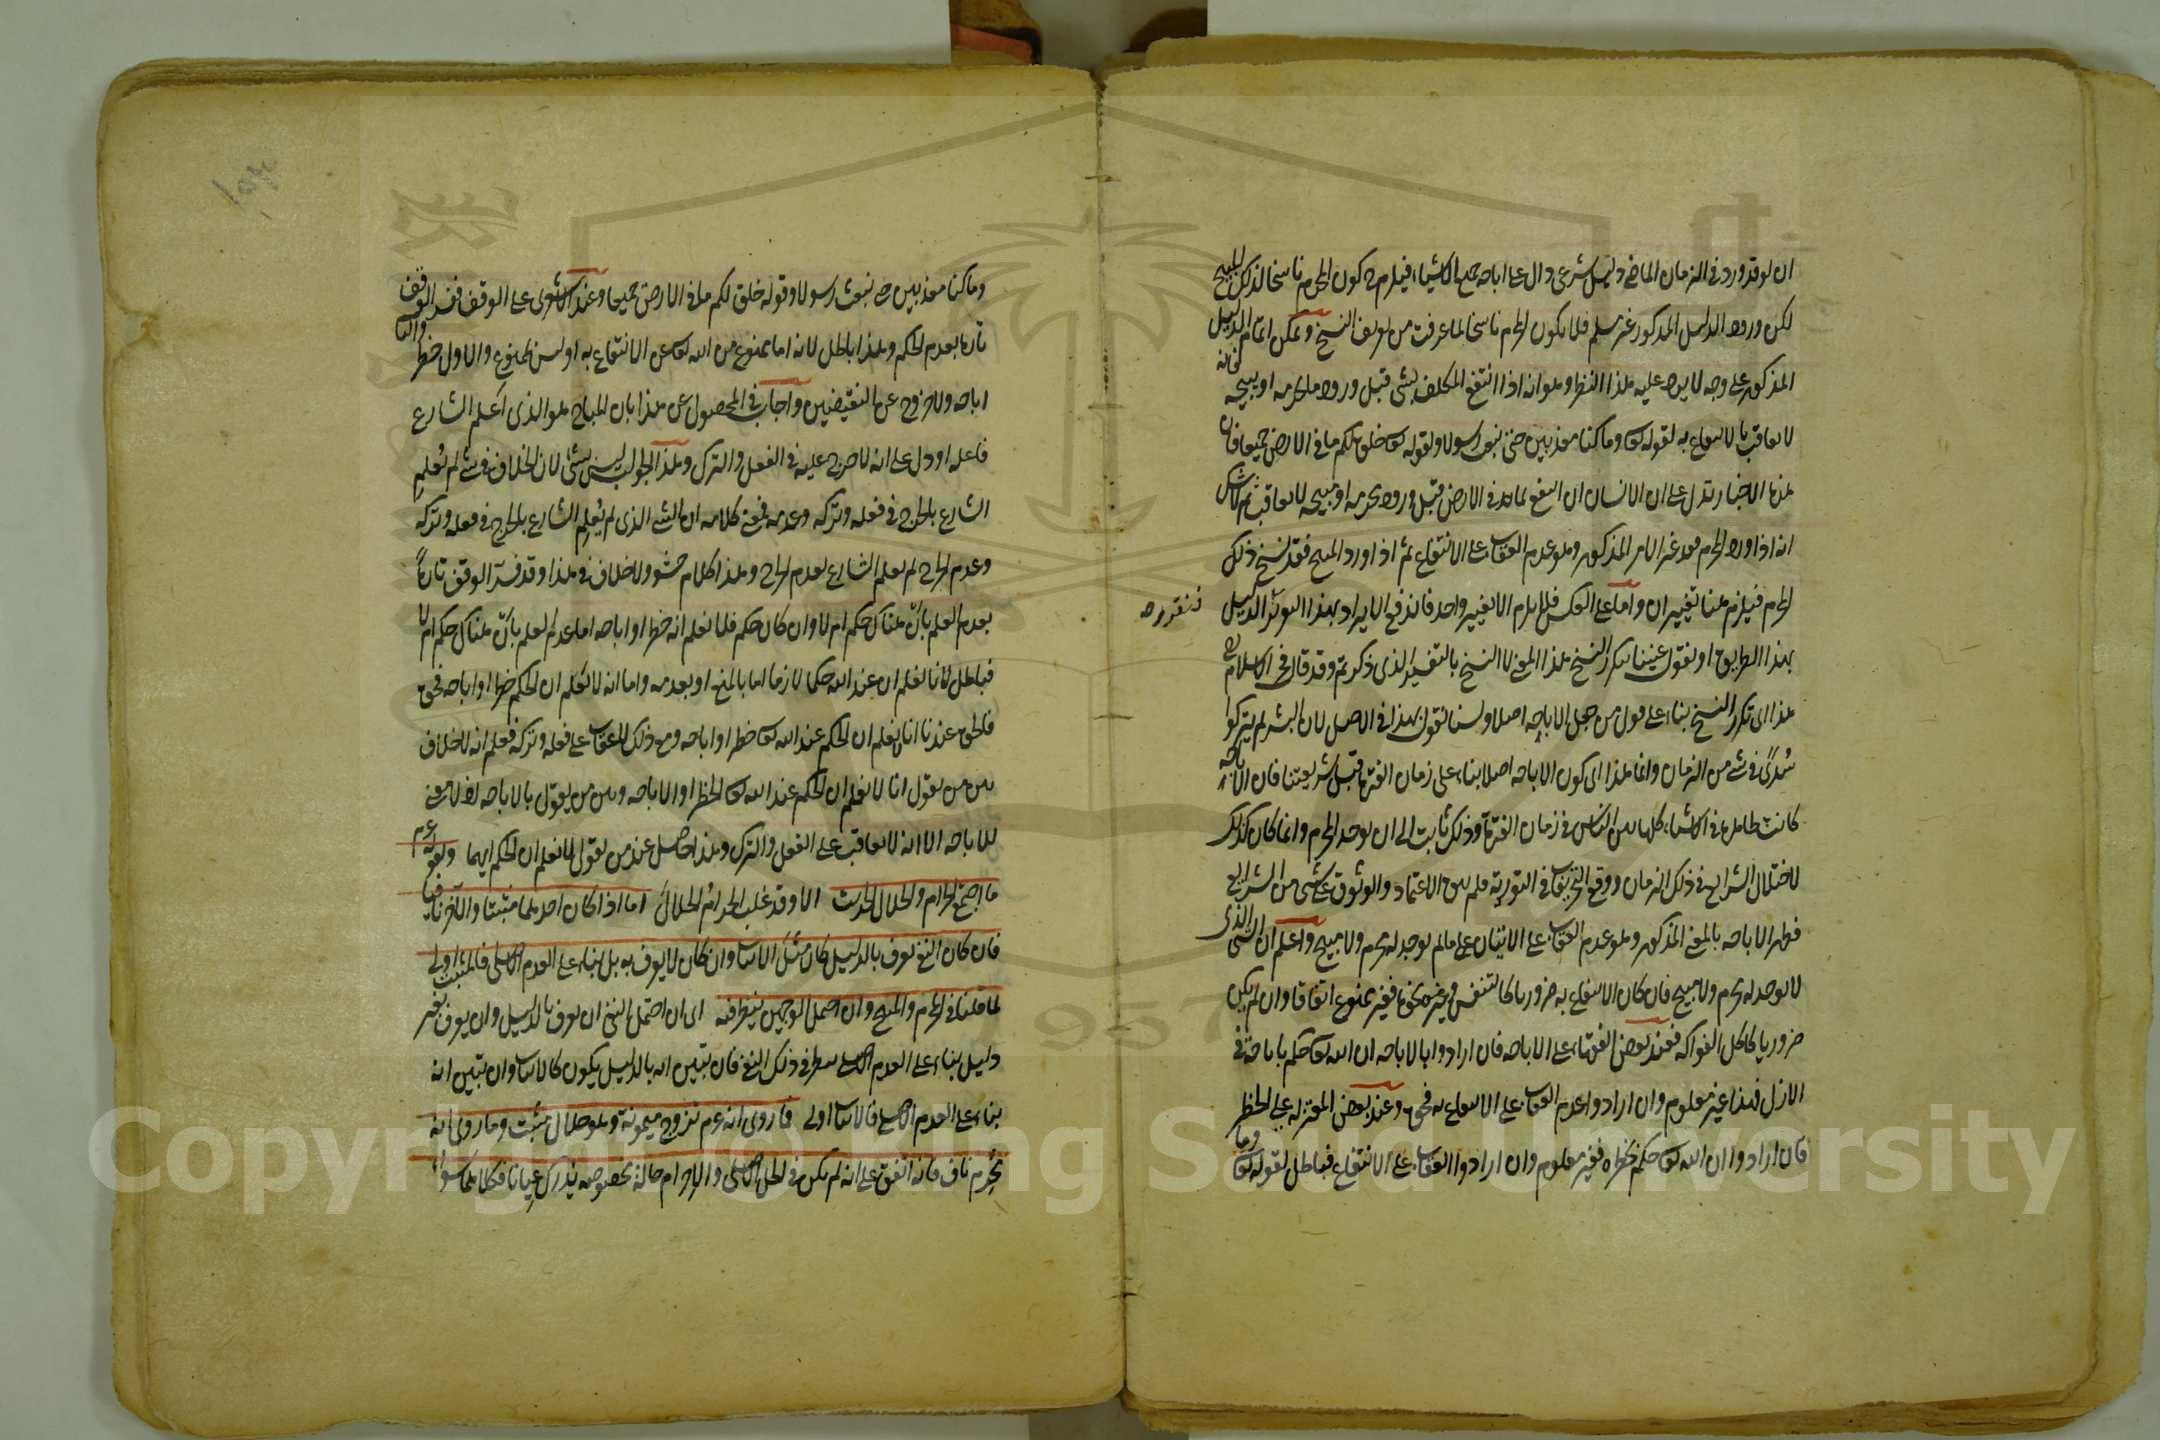 ان لو قد ورد في الزمان الماضي دليل شرعي دال على اباحة جميع الاشياء فيلزم ح كون المحرم ناسخا لذلك المبيح
لكن ورود الدليل المذكور غير مسلم فلا يكون المحرم ناسخا لما عرفت من تعريف النسخ ويمكن اتمام الدليل
المذكور على وجه لا يرد عليه هذا النظر وهو انه اذا انتفع المكلف بشئ قبل ورود ما يحرمه او يبيحه فانه
لا يعاقب بالانتفاع به لقوله تعا وما كنا معذبين حتى نبعث رسولا ولقوله تعا خلق لكم ما في الارض جميعا فان
هذا الاخبار تدل على ان الانسان ان انتفع بما في الارض قبل ورود محرمه او مبيحه لا يعاقب ثم لا شك
انه اذا ورد المحرم فقد غير الامر المذكور وهو عدم العقاب على الانتفاع ثم اذا ورد المبيح فقد نسخ ذلك
المحرم فيلزم هنا تغييران واما على العكس فلا يلزم الا تغيير واحد فاندفع الايراد بهذا التقرير الدليل
فنقرره
بهذا الطريق او نقول عنينا بتكرر النسخ هذا المعنى لا النسخ بالتفسير الذي ذكرتم وقد قال فخر الاسلام في
هذا اي تكرر النسخ بناء على قول من جعل الاباحة اصلا ولسنا نقول بهذا في الاصل لان البشر لم يتركوا
سدى في شئ من الزمان وانما هذا اي كون الاباحة اصلا بناء على زمان الفترة قبل شريعتنا فان الاباحة
كانت ظاهرة في الاشياء كلها بين الناس في زمان الفترة وذلك ثابت الى ان يوجد المحرم وانما كان كذلك
لاختلال الشرايع في ذلك الزمان ووقوع التحريفات في التورية فلم يبق الاعتماد والوثوق على شئ من الشرايع
فظهر الاباحة بالمعنى المذكور وهو عدم العقاب على الاتيان على ما لم يوجد له محرم ولا مبيح واعلم ان الشئ الذي
لا يوجد له محرم ولا مبيح فان كان الانتفاع به ضروريا كالتنفس ونحوه فغير ممنوع اتفاقا وان لم يكن
ضروريا كاكل الفواكه فعند بعض الفقهاء على الاباحة فان ارادوا بالاباحة ان الله تعا حكم باباحته في
الازل فهذا غير معلوم وان ارادوا عدم العقاب على الانتفاع به فحق وعند بعض المعتزلة على الحظر
فان ارادوا ان الله تعا حكم بحظره فغير معلوم وان ارادوا العقاب على الانتفاع فباطل لقوله تعا وما
وما كنا معذبين حتى نبعث رسولا وقوله خلق لكم ما في الارض جميعا وعند الاشعري على الوقف ففسر الوقف
تارة بعدم الحكم وهذا باطل لانه اما ممنوع من الله تعا عن الانتفاع به او ليس بممنوع والاول حظر والثاني
اباحة ولا خروج عن النقيضين واجاب في المحصول عن هذا بان المباح هو الذي اعلم الشارع
فاعله او دل على انه لا حرج عليه في الفعل والترك وهذا الجواب ليس بشئ لان الخلاف في شئ لم يُعلم
الشارع بالحرج في فعله وتركه وعدمه فمعنى كلامه ان الشئ الذي لم يُعلم الشارع بالحرج في فعله وتركه
وعدم الحرج لم يعلم الشارع بعدم الحرج وهذا كلام حشو ولا خلاف في هذا وقد فسر الوقف تارة
بعدم العلم بان هناك حكم ام لا وان كان حكم فلا نعلم انه حظر او اباحة اما عدم العلم بان هناك حكم ام لا
فباطل لانا نعلم ان عند الله حكما لازما اما بالمنع او بعدمه واما انه لا نعلم ان الحكم حظر او اباحة فحق
فالحق عندنا انا لا نعلم ان الحكم عند الله تعا حظر او اباحة ومع ذلك لا عقاب على فعله وتركه فعلم انه لا خلاف
بين من يقول انا لا نعلم ان الحكم عند الله تعا الحظر او الاباحة وبين من يقول بالاباحة اذ لا معنى
للاباحة الا انه لا يعاقب على الفعل والترك وهذا حاصل عند من يقول لا نعلم ان الحكم ايهما ولقوله عم
ما اجتمع الحرام والحلال الحديث الا وقد غلب الحرام الحلال اما اذا كان احدهما مثبتا والآخر نافيا
فان كان النفي يعرف بالدليل كان مثل الاثبات وان كان لا يعرف به بل بناء على العدم الاصلي فالمثبت اولى
لما قلنا في المحرم والمبيح وان احتمل الوجهين ينظر فيه اي ان احتمل النفي ان يعرف بالدليل وان يعرف بغير
دليل بناء على العدم الاصلي ينظر في ذلك النفي فان تبين انه بالدليل يكون كالاثبات وان تبين انه
بناء على العدم الاصلي فالاثبات اولى فما روي انه عم تزوج ميمونة وهو حلال مثبت وما روي انه
محرم ناف فانه اتفق على انه لم يكن في الحل الاصلي والاحرام حالة مخصوصة يدرك عيانا فكلاهما سواء